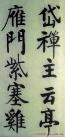 岱禪主云亭
雁門紫塞雞